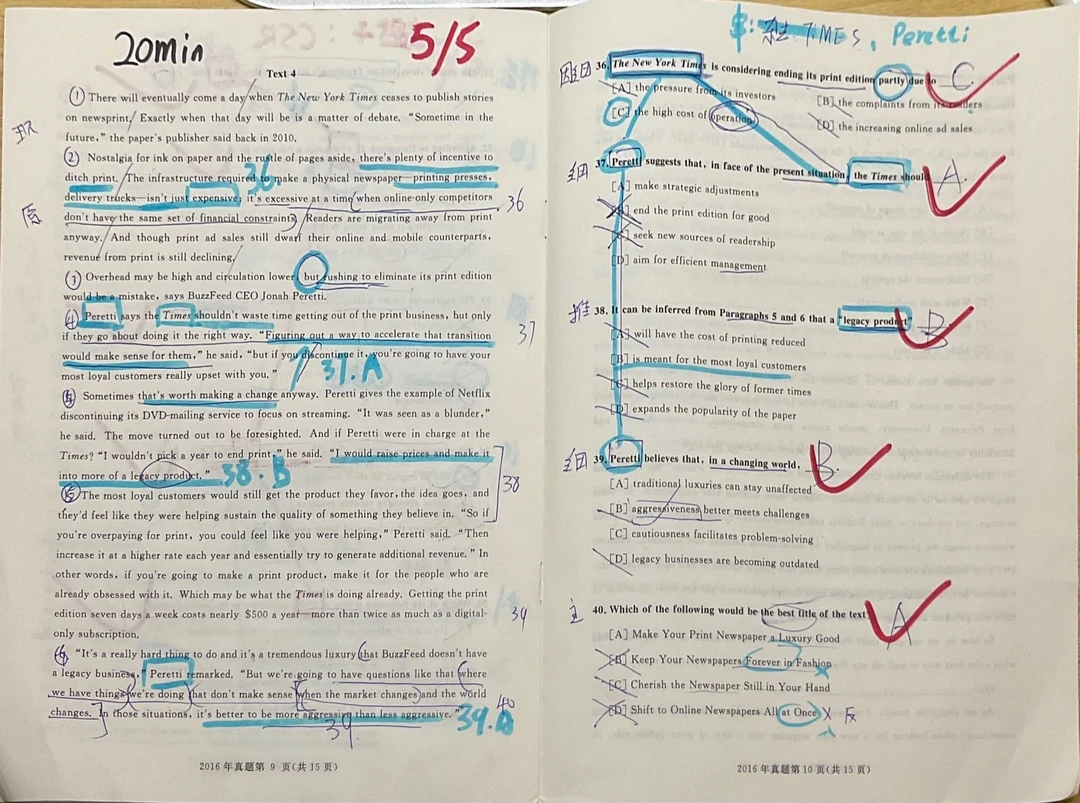 20min
5/5
Text 4
① There will eventually come a day when The New York Times ceases to publish stories
on newsprint. Exactly when that day will be is a matter of debate. “Sometime in the
future,” the paper's publisher said back in 2010.
② Nostalgia for ink on paper and the rustle of pages aside, there's plenty of incentive to
ditch print. The infrastructure required to make a physical newspaper—printing presses,
36
delivery trucks—isn't just expensive; it's excessive at a time when online-only competitors
36
don't have the same set of financial constraints. Readers are migrating away from print
anyway. And though print ad sales still dwarf their online and mobile counterparts,
revenue from print is still declining.
③ Overhead may be high and circulation lower, but rushing to eliminate its print edition
would be a mistake, says BuzzFeed CEO Jonah Peretti.
④ Peretti says the Times shouldn't waste time getting out of the print business, but only
if they go about doing it the right way. “Figuring out a way to accelerate that transition
37
would make sense for them,” he said, “but if you discontinue it, you're going to have your
most loyal customers really upset with you.”
37.A
Sometimes that's worth making a change anyway. Peretti gives the example of Netflix
discontinuing its DVD-mailing service to focus on streaming. “It was seen as a blunder,”
he said. The move turned out to be foresighted. And if Peretti were in charge at the
Times? “I wouldn't pick a year to end print,” he said. “I would raise prices and make it
into more of a legacy product.”
38.B
38
The most loyal customers would still get the product they favor, the idea goes, and
they'd feel like they were helping sustain the quality of something they believe in. “So if
you're overpaying for print, you could feel like you were helping,” Peretti said. “Then
increase it at a higher rate each year and essentially try to generate additional revenue.” In
other words, if you're going to make a print product, make it for the people who are
already obsessed with it. Which may be what the Times is doing already. Getting the print
edition seven days a week costs nearly $500 a year—more than twice as much as a digital-
39
only subscription.
“It's a really hard thing to do and it's a tremendous luxury that BuzzFeed doesn't have
a legacy business,” Peretti remarked. “But we're going to have questions like that where
we have things we're doing that don't make sense when the market changes and the world
changes. In those situations, it's better to be more aggressive than less aggressive.”
40
39
2016 年真题第 9 页(共 15 页)
TIMES, Peretti
36. The New York Times is considering ending its print edition partly due to
C
[A] the pressure from its investors
[B] the complaints from its readers
[C] the high cost of operation
[D] the increasing online ad sales
37. Peretti suggests that, in face of the present situation, the Times should
A
[A] make strategic adjustments
[B] end the print edition for good
[C] seek new sources of readership
[D] aim for efficient management
推 38. It can be inferred from Paragraphs 5 and 6 that a “legacy product”
B
[A] will have the cost of printing reduced
[B] is meant for the most loyal customers
[C] helps restore the glory of former times
[D] expands the popularity of the paper
39. Peretti believes that, in a changing world,
B
[A] traditional luxuries can stay unaffected
[B] aggressiveness better meets challenges
[C] cautiousness facilitates problem-solving
[D] legacy businesses are becoming outdated
主 40. Which of the following would be the best title of the text?
A
[A] Make Your Print Newspaper a Luxury Good
[B] Keep Your Newspapers Forever in Fashion
[C] Cherish the Newspaper Still in Your Hand
[D] Shift to Online Newspapers All at Once
X 反
2016 年真题第 10 页(共 15 页)